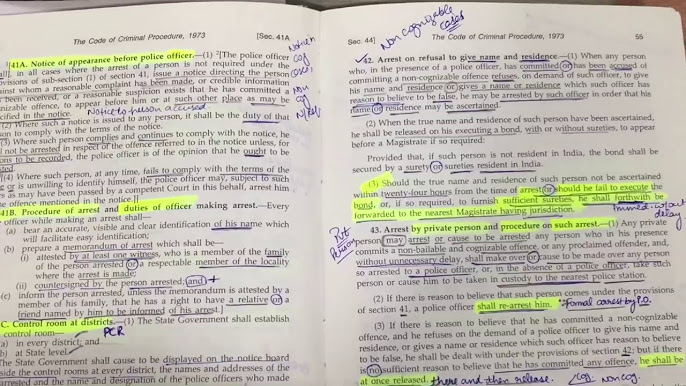 The Code of Criminal Procedure, 1973 [Sec. 41A
1[41A. Notice of appearance before police officer.—(1) 2[The police officer
in all cases where the arrest of a person is not required under the
provisions of sub-section (1) of section 41, issue a notice directing the person
against whom a reasonable complaint has been made, or credible information
been received, or a reasonable suspicion exists that he has committed a
cognizable offence, to appear before him or at such other place as may be
specified in the notice. Notice to person accused
(2) Where such a notice is issued to any person, it shall be the duty of that
person to comply with the terms of the notice.
(3) Where such person complies and continues to comply with the notice, he
shall not be arrested in respect of the offence referred to in the notice unless, for
reasons to be recorded, the police officer is of the opinion that he ought to be
arrested.
(4) Where such person, at any time, fails to comply with the terms of the
notice or is unwilling to identify himself, the police officer may, subject to such
orders as may have been passed by a competent Court in this behalf, arrest him
for the offence mentioned in the notice.]
41B. Procedure of arrest and duties of officer making arrest.—Every
officer while making an arrest shall—
(a) bear an accurate, visible and clear identification of his name which
will facilitate easy identification;
(b) prepare a memorandum of arrest which shall be—
(i) attested by at least one witness, who is a member of the family
of the person arrested or a respectable member of the locality
where the arrest is made;
(ii) countersigned by the person arrested; and +
(c) inform the person arrested, unless the memorandum is attested by a
member of his family, that he has a right to have a relative or a
friend named by him to be informed of his arrest.]
C. Control room at districts.—(1) The State Government shall establish
control room— PCR
a) in every district; and
b) at State level.
The State Government shall cause to be displayed on the notice board
outside the control rooms at every district, the names and addresses of the
arrested and the name and designation of the police officers who made
Sec. 44] The Code of Criminal Procedure, 1973 55
Non cognizable cases
42. Arrest on refusal to give name and residence.—(1) When any person
who, in the presence of a police officer, has committed or has been accused of
committing a non-cognizable offence refuses, on demand of such officer, to give
his name and residence or gives a name or residence which such officer has
reason to believe to be false, he may be arrested by such officer in order that his
name or residence may be ascertained.
(2) When the true name and residence of such person have been ascertained,
he shall be released on his executing a bond, with or without sureties, to appear
before a Magistrate if so required:
Provided that, if such person is not resident in India, the bond shall be
secured by a surety or sureties resident in India.
(3) Should the true name and residence of such person not be ascertained
within twenty-four hours from the time of arrest or should he fail to execute the
bond, or, if so required, to furnish sufficient sureties, he shall forthwith be
forwarded to the nearest Magistrate having jurisdiction.
delay
43. Arrest by private person and procedure on such arrest.—(1) Any private
person may arrest or cause to be arrested any person who in his presence
commits a non-bailable and cognizable offence, or any proclaimed offender, and,
without unnecessary delay, shall make over or cause to be made over any person
so arrested to a police officer, or, in the absence of a police officer, take such
person or cause him to be taken in custody to the nearest police station.
Pvt Person
(2) If there is reason to believe that such person comes under the provisions
of section 41, a police officer shall re-arrest him. "Formal arrest by P.O.
(3) If there is reason to believe that he has committed a non-cognizable
offence, and he refuses on the demand of a police officer to give his name and
residence, or gives a name or residence which such officer has reason to believe
to be false, he shall be dealt with under the provisions of section 42; but if there
is no sufficient reason to believe that he has committed any offence, he shall be
at once released. there and then release. Cog Non cog.